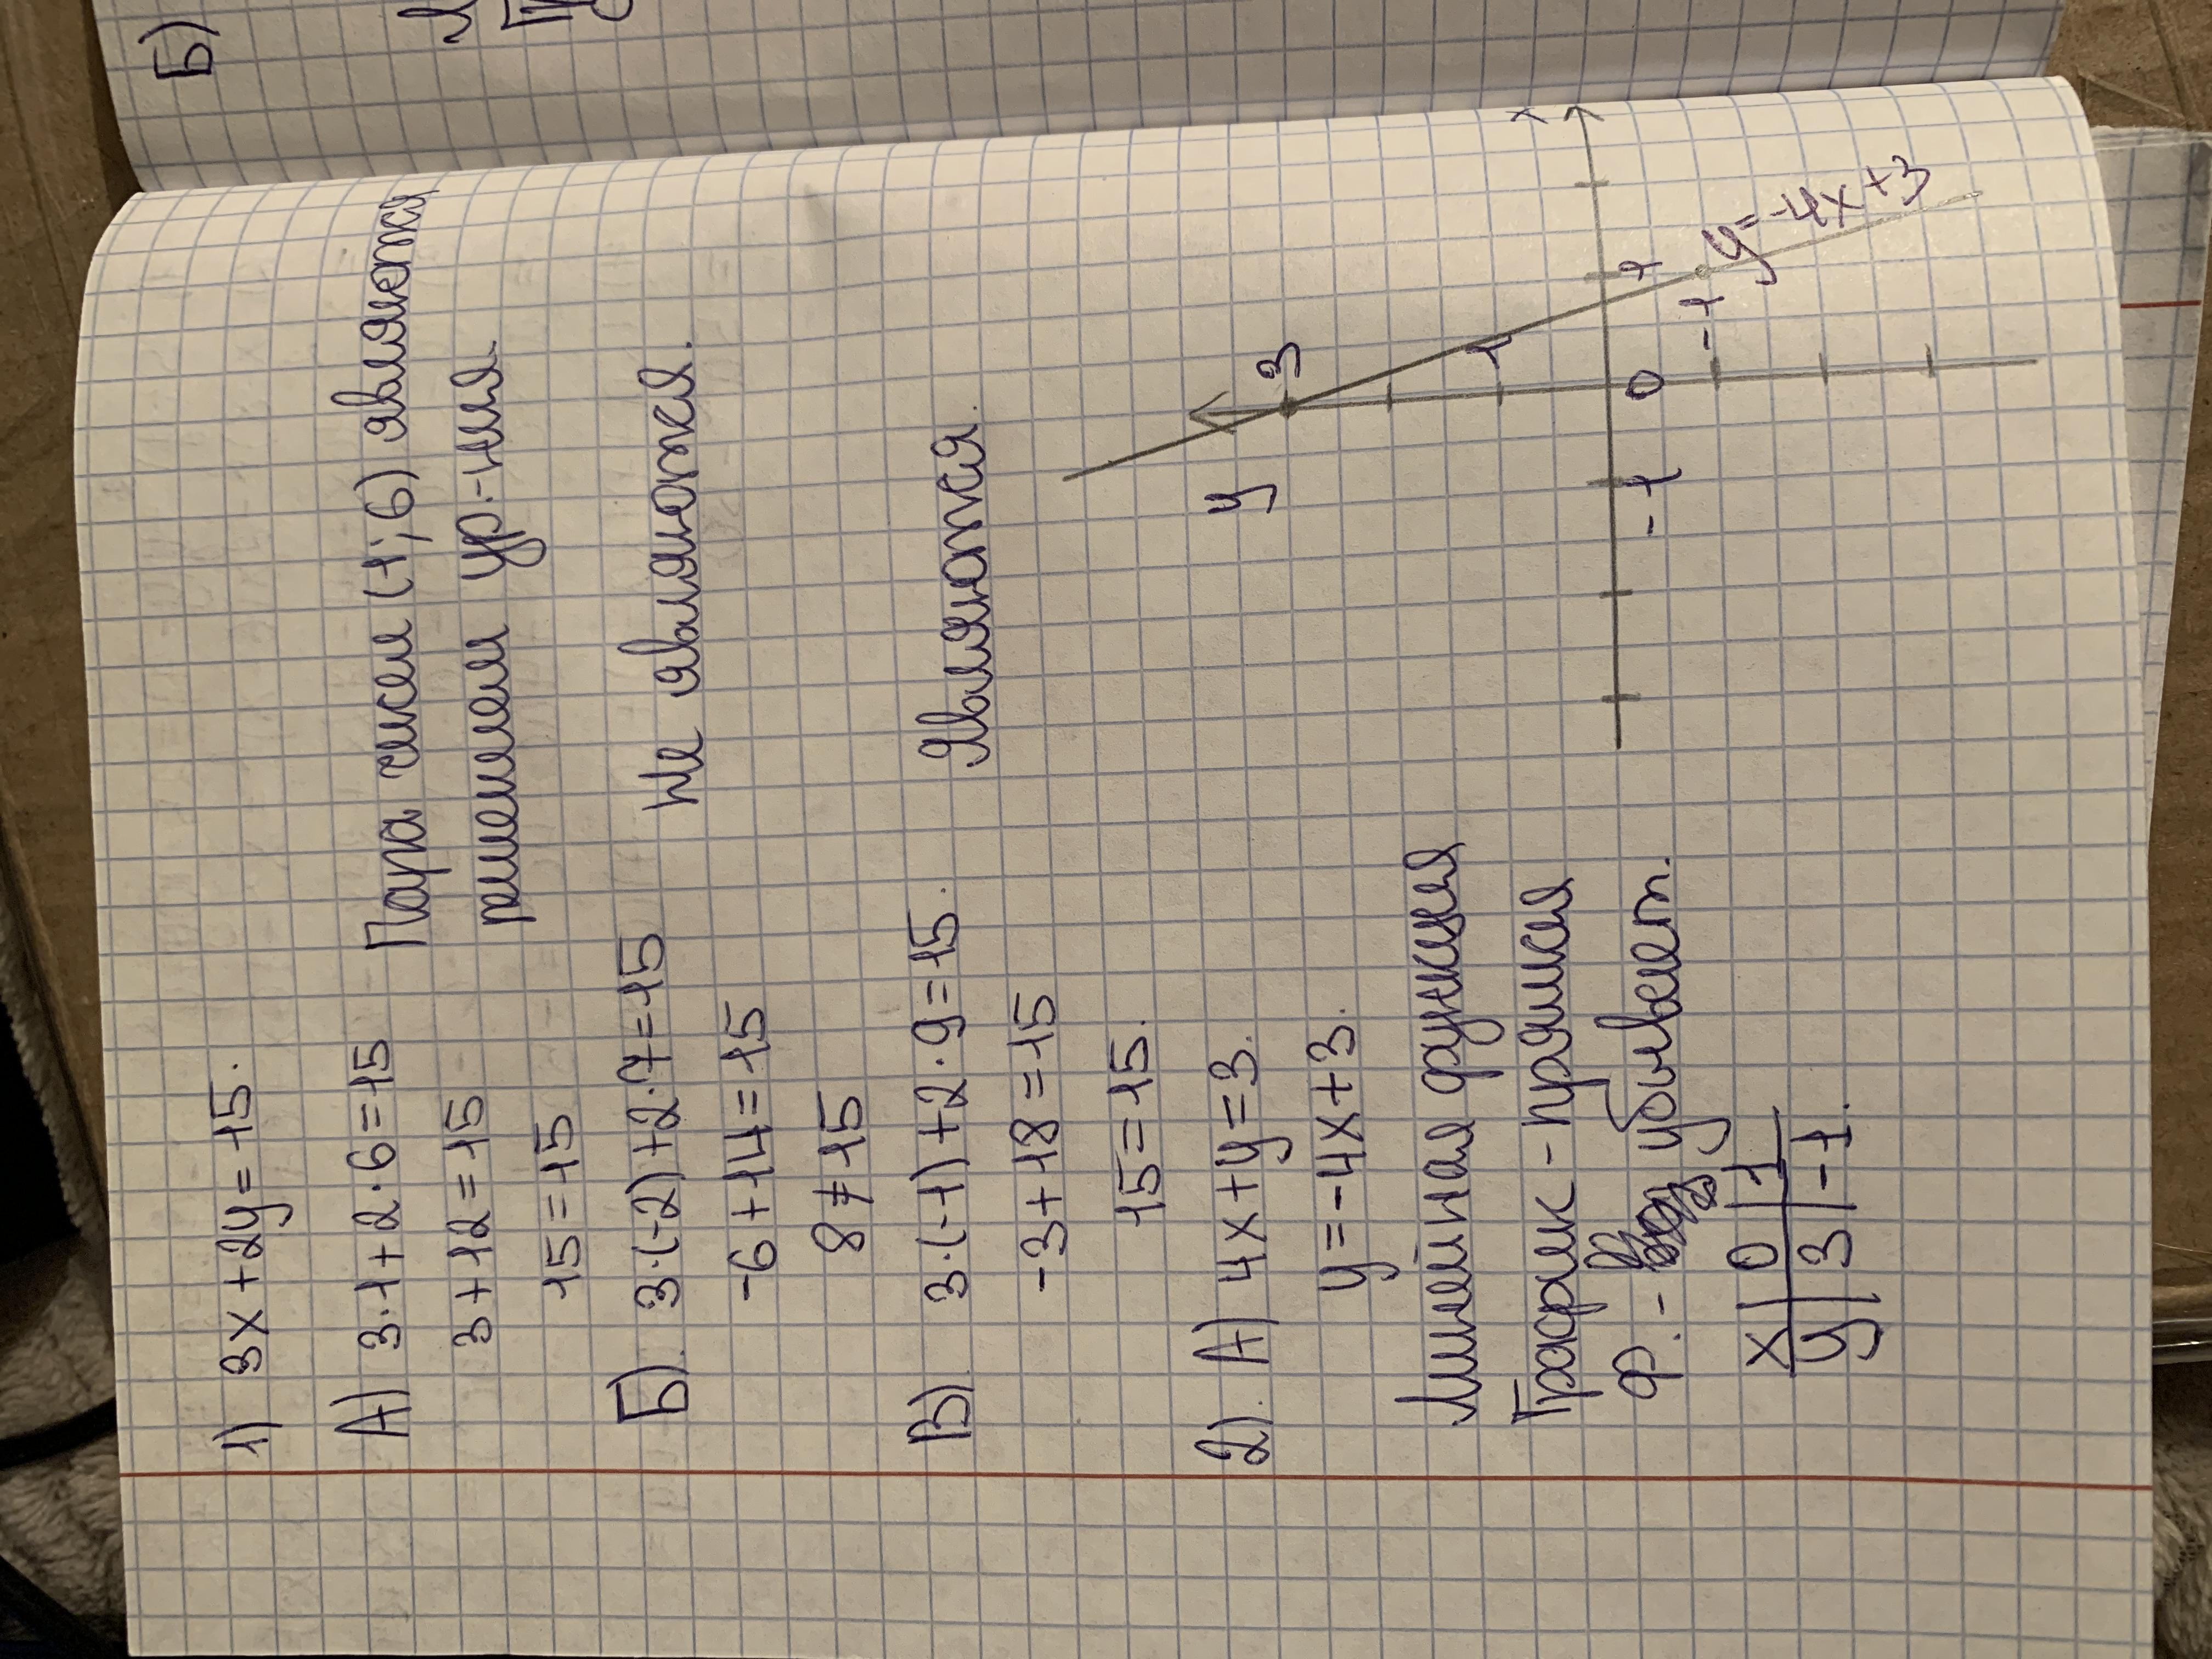 1) 3x+2y=15.
А) 3·1+2·6=15 Пара чисел (1;6) является
3+12=15 решением ур.-ния.
15=15
Б). 3·(-2)+2·7=15 Не являются.
-6+14=15
8≠15
В). 3·(-1)+2·9=15. Являются.
-3+18=15
15=15.
2). А) 4x+y=3.
y=-4x+3.
Линейная функция
График - прямая
Ф. - убывает.
x | 0 | 1
y | 3 | -1.
y
3
1
x
-1 0 1
-1
y=-4x+3
Б)